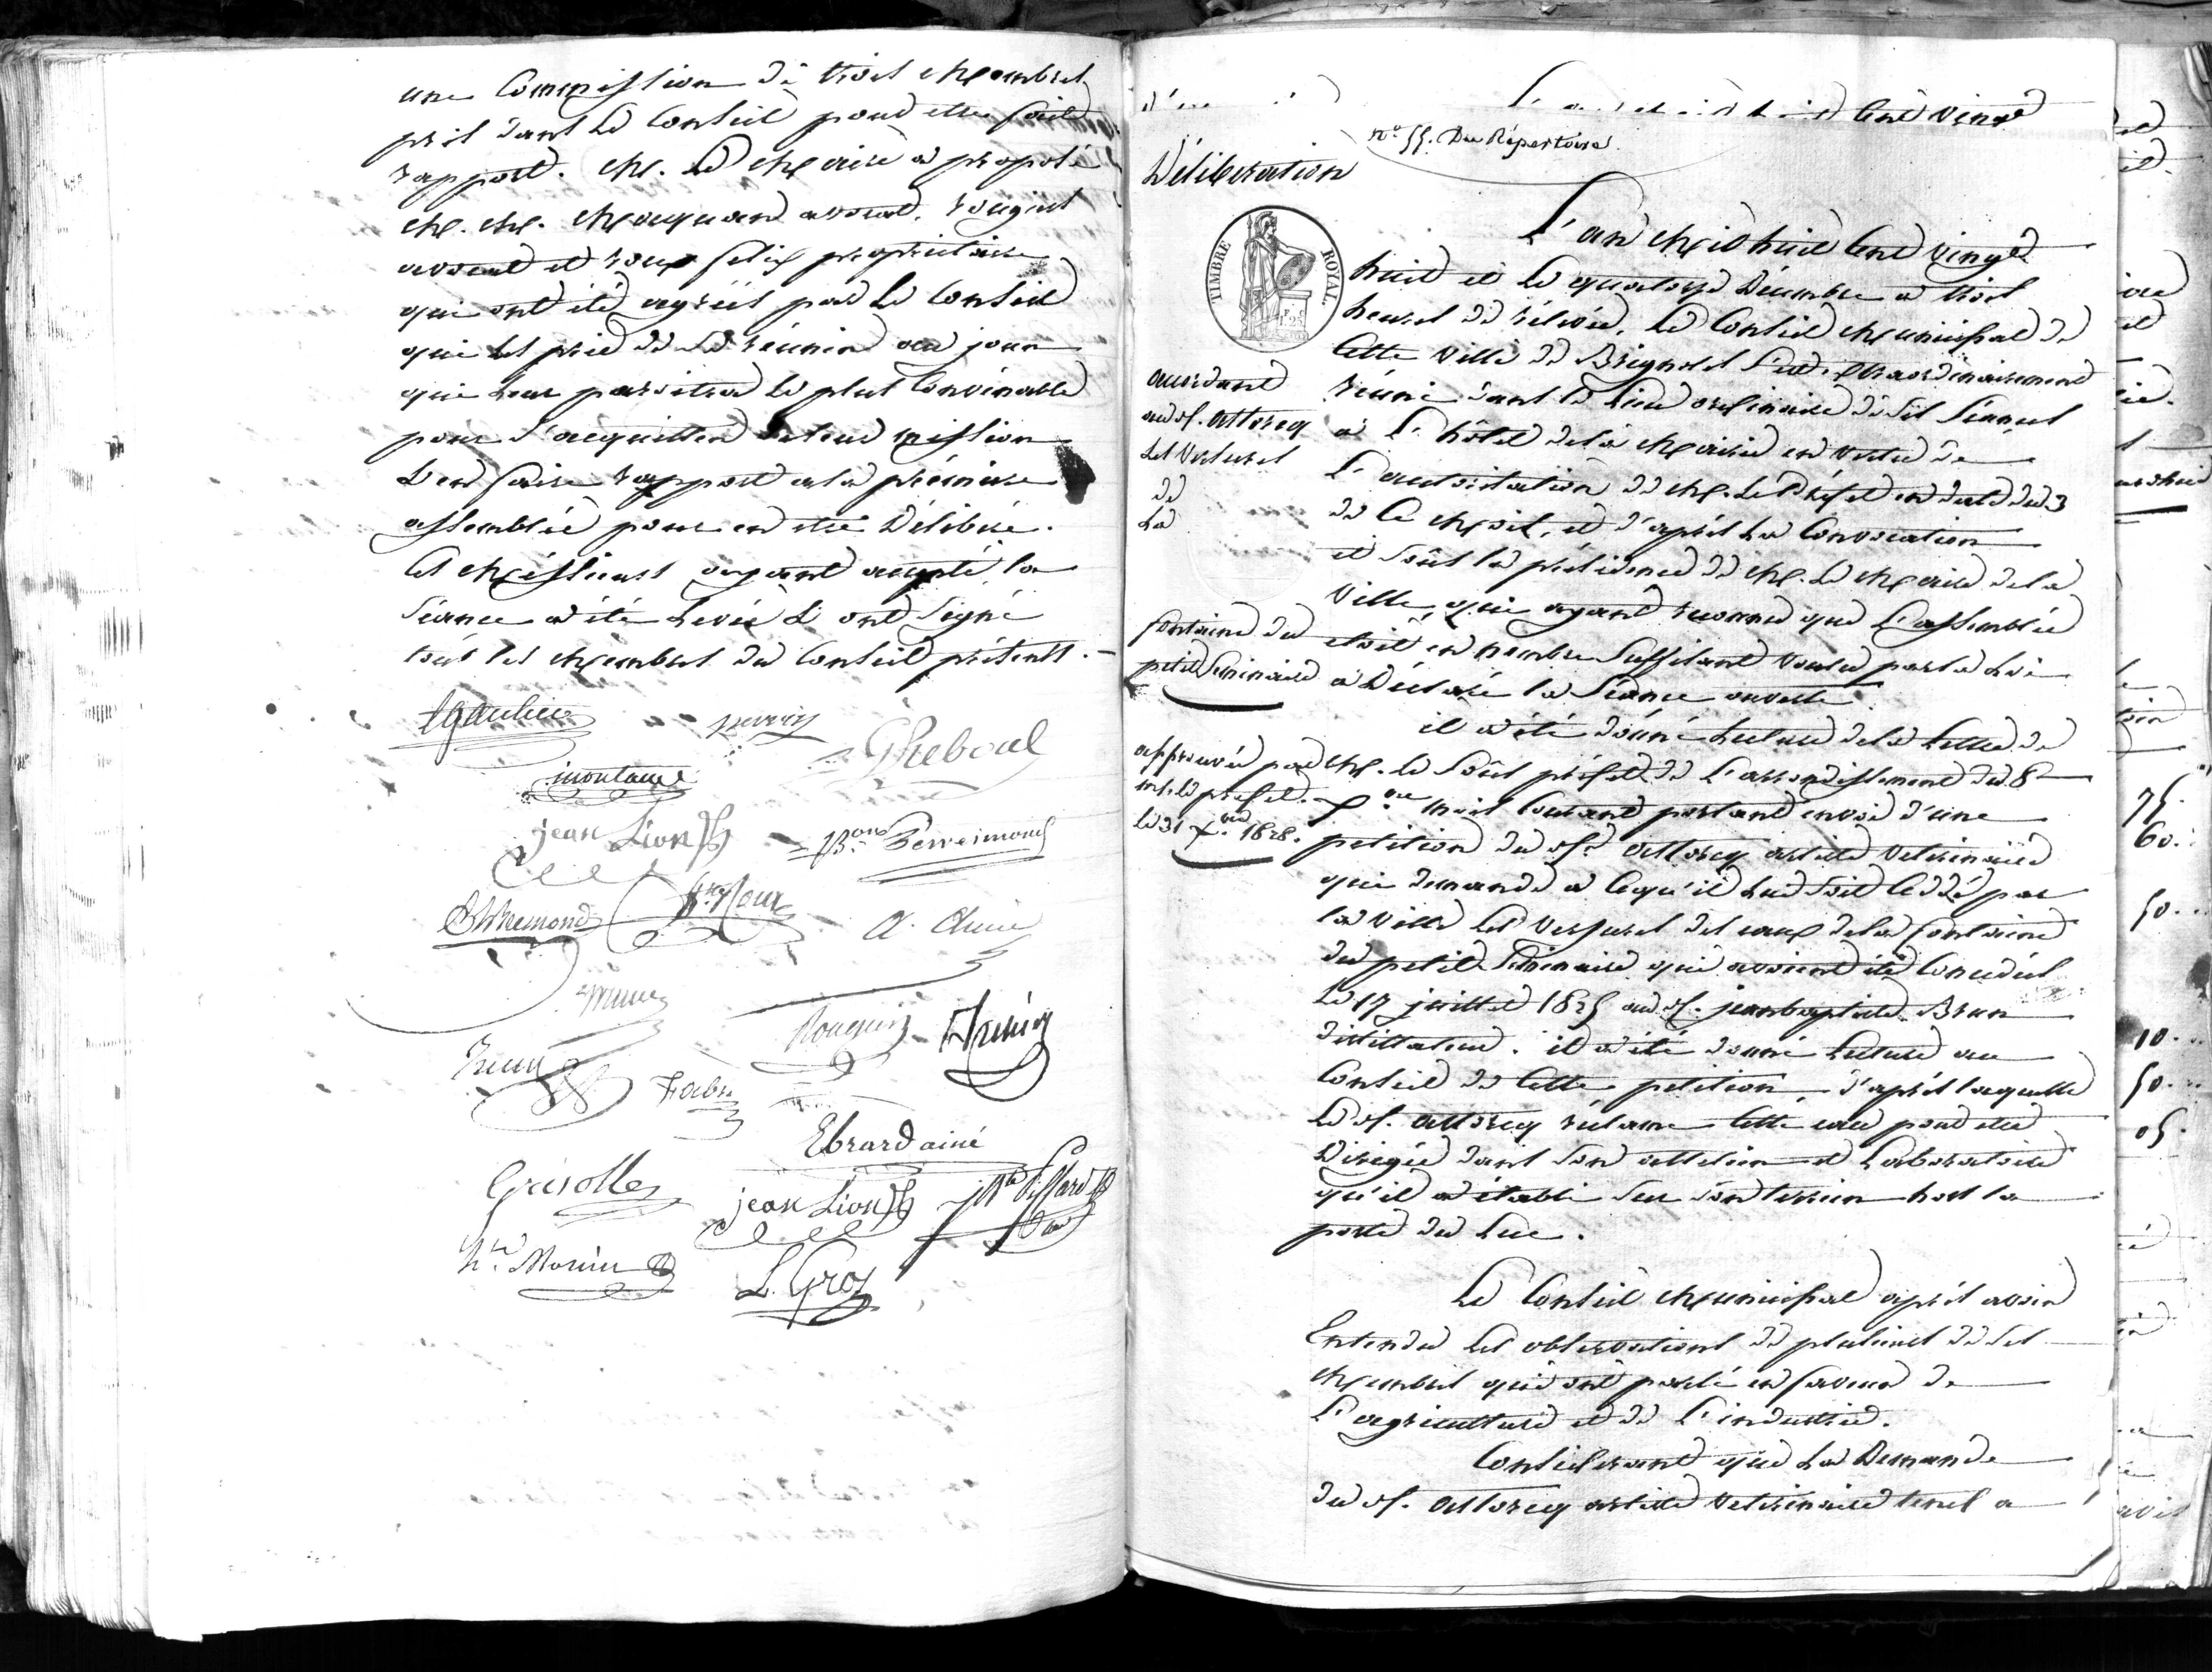 une Commission de trois Membres
pris dans le Conseil pour etre fait
rapport. M. le Maire a proposé
M. M. Maquan avocat, rougiet
avocat et roux felix proprietaire
qui ont été agréés par le Conseil
qui les prie de se réunir au jour
qui leur paroitra le plus Convenable
pour s'acquitter de leur mission
& en faire rapport a la premiere
assemblée pour en etre Délibéré.
Ces Messieurs ayant accepté la
séance a été levée & ont signé
tous les Membres du Conseil présents.
montaud
Greboul
jean Lion
Bon Berreimond
A. Aune
Rouguin
Fabre
Ebrard ainé
Grisolle
jean Lion
hte. Morin
L. Gros
Cent vingt
no. 55. Du Répertoire
Délibération
TIMBRE ROYAL
L'an Mil huit Cent Vingt
huit et le quatorze Décembre a trois
heures de rélevée. Le Conseil Municipal de
Cette Ville de Brignoles s'est extraordinairement
réuni dans le lieu ordinaire de ses séances
à l'hôtel de la Mairie en vertu de
l'autorisation de M. le Préfet en date du 3
de Ce Mois, et d'après la Convocation
et sous la présidence de M. le Maire de la
Ville, qui ayant reconnu que l'assemblée
etoit en nombre suffisant voulu par la loi
a Déclaré la séance ouverte.
accordant
au sr. attorcq
les Versures
de
la
fontaine du
petit Seminaire
approuvé par
mr. le préfet.
le 31 Xbre 1828.
il a été donné lecture de la lettre de
M. le sous préfet de l'arrondissement du 8
du mois Courant portant envoi d'une
petition du sr. attorcq artiste veterinaire
qui demande a Ce qu'il lui soit Cédé par
la Ville les Versures des eaux de la fontaine
du petit Séminaire qui avoient été Concédées
le 17 juillet 1825 au sr. jean baptiste Brun
distillateur. il a été donné lecture au
Conseil de Cette petition, d'après laquelle
le sr. attorcq réclame Cette eau pour etre
Dirigée dans son attelier et Laboratoire
qu'il a établi sur son terrein hors la
porte du Luc.
Le Conseil Municipal après avoir
Entendu les observations de plusieurs de ses
Membres qui ont parlé en faveur de
l'agriculture et de l'industrie.
Considerant que la Demande
du sr. attorcq artiste veterinaire tend a